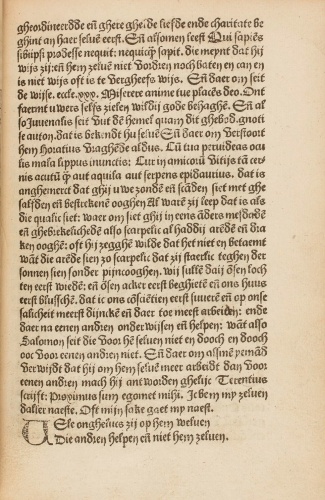 gheordineerdde eñ ghere gheĩde liefde ende charitate be
ghint an haer seluē eerst. Eñ alsomen leest Qui sapiēs
sibiipsi prodesse nequit: nequicq̃ sapit. die meynt dat hij
wijs zij: eñ hem zeluē niet vordren noch baten en can en
is niet wijs oft is te vergheefs wijs. Eñ daer om seit
de wijse. eccle.xxx. Miserere anime tue placēs deo. Ont
faermt uwers zelfs zielen wildij gode behaghē. Eñ al
so Juuenalis seit vut dē hemel quam dit ghebod. gnoti
se auton. dat is bekendt hu seluē Eñ daer om verstoort
hem Horatius vraghēde aldus. Cū tua peruideas ocu
lis mala lippus inunctis: Cur in amicorū vitijs tā cer
nis acutū q̃ aut aquila aut serpens epidaurius. dat is
anghemerct dat ghij uwe zonden eñ scādē siet met ghe
salfden eñ besteckenē ooghen Al warē zij leep dat is als
die qualic siet: waer om siet ghij in eens āders mesdadē
eñ ghebrekelichede also scarpelic al haddij arēde eñ dra
ken ooghē: oft hij zegghē wilde dat het niet en betaemt
wāt die arēde sien zo scarpelic dat zij staerlic teghen der
sonnen sien sonder pijncooghen. wij sullē daij ōsen loch
ten eerst wiedē: eñ ōsen acker eerst beghietē eñ ons huus
eerst blusschē. dat is ons cōsciētien eerst suuerē eñ op onse
salicheit meerst dijnckē eñ daer toe meest arbeidē: ende
daer na eenen andren onderwijsen eñ helpen: wāt also
Salomon seit die voor hē seluen niet en dooch en dooch
ooc voor eenen andren niet. Eñ daer om alsmē yemād
verwijdt dat hij om hem seluē meer arbeidt dan voor
eenen andren mach hij antworden ghelijc Terentius
scrijft: Proximus sum egomet mihi. Ic bem my zeluen
dalier naeste. Oft mijn sake gaet my naest.
Ele ongheluus zij op hem weluen
Die andren helpen eñ niet hem zeluen.